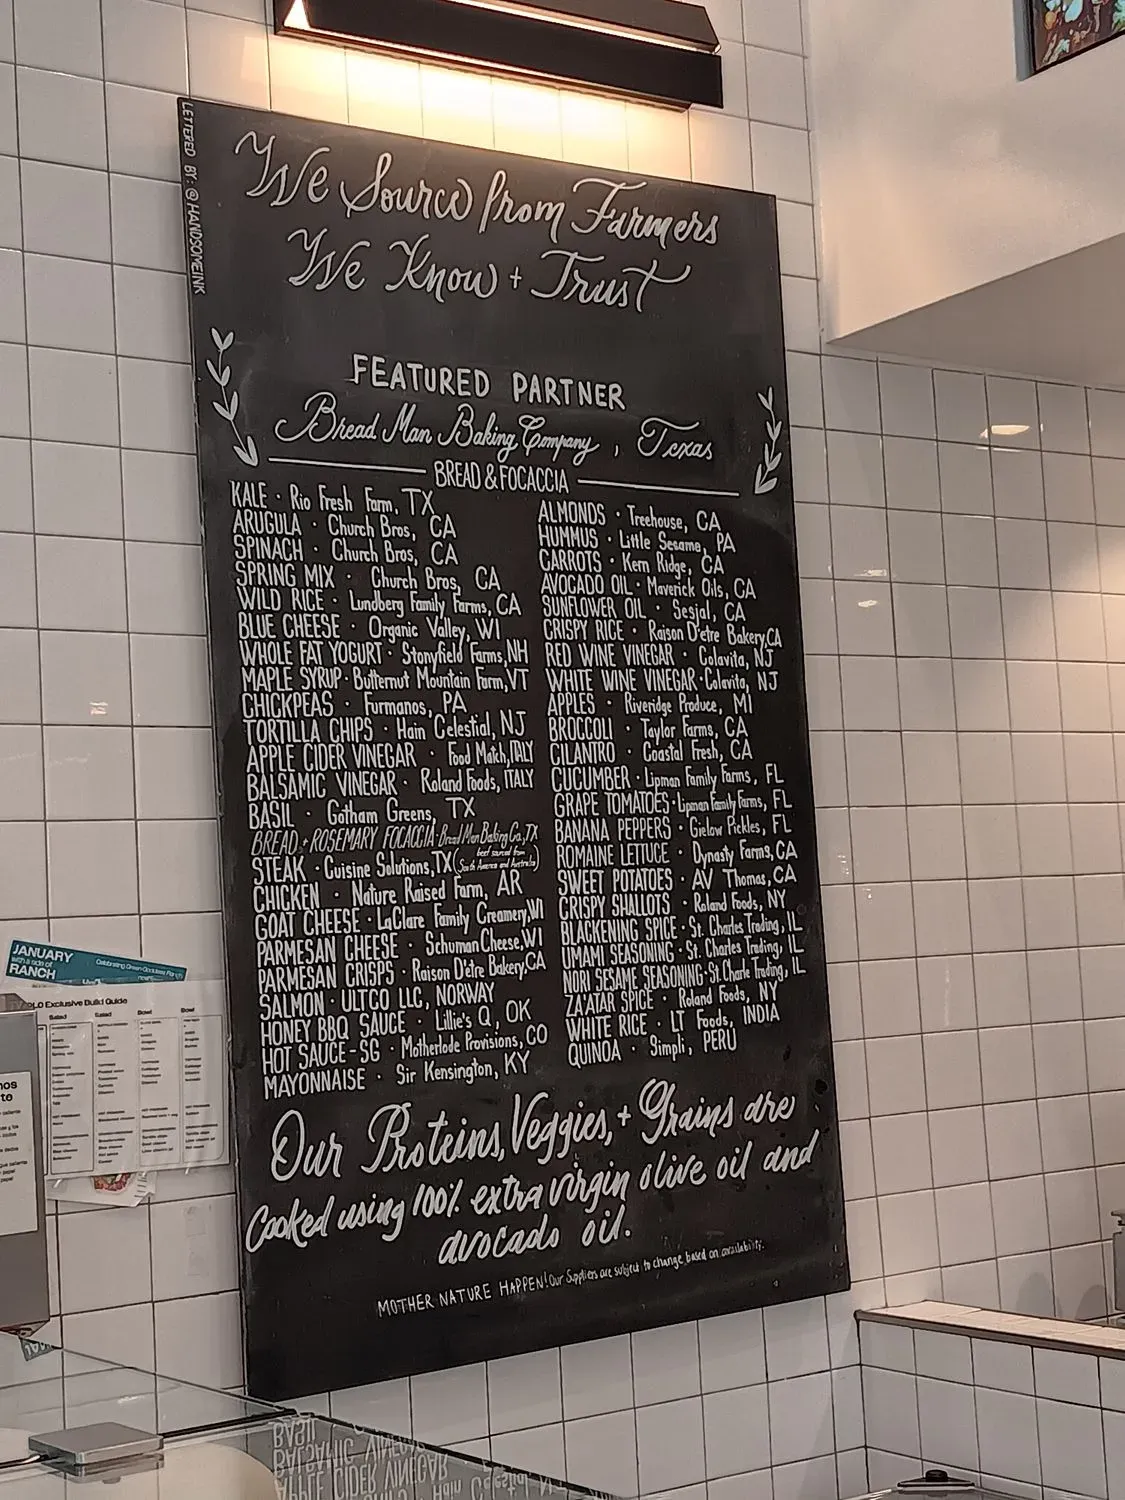 LETTERED BY: @HANDSOMEINK
We Source from Farmers
We Know + Trust
FEATURED PARTNER
Bread Man Baking Company, Texas
BREAD & FOCACCIA
KALE · Rio Fresh Farm, TX
ARUGULA · Church Bros, CA
SPINACH · Church Bros, CA
SPRING MIX · Church Bros, CA
WILD RICE · Lundberg Family Farms, CA
BLUE CHEESE · Organic Valley, WI
WHOLE FAT YOGURT · Stonyfield Farms, NH
MAPLE SYRUP · Butternut Mountain Farm, VT
CHICKPEAS · Furmanos, PA
TORTILLA CHIPS · Hain Celestial, NJ
APPLE CIDER VINEGAR · Food Match, ITALY
BALSAMIC VINEGAR · Roland Foods, ITALY
BASIL · Gotham Greens, TX
BREAD + ROSEMARY FOCACCIA · Bread Man Baking Co, TX
STEAK · Cuisine Solutions, TX (beef sourced from South America and Australia)
CHICKEN · Nature Raised Farm, AR
GOAT CHEESE · LaClare Family Creamery, WI
PARMESAN CHEESE · Schuman Cheese, WI
PARMESAN CRISPS · Raison D'etre Bakery, CA
SALMON · ULTCO LLC, NORWAY
HONEY BBQ SAUCE · Lillie's Q, OK
HOT SAUCE-SG · Motherlode Provisions, CO
MAYONNAISE · Sir Kensington, KY
ALMONDS · Treehouse, CA
HUMMUS · Little Sesame, PA
CARROTS · Kern Ridge, CA
AVOCADO OIL · Maverick Oils, CA
SUNFLOWER OIL · Sesjal, CA
CRISPY RICE · Raison D'etre Bakery, CA
RED WINE VINEGAR · Colavita, NJ
WHITE WINE VINEGAR · Colavita, NJ
APPLES · Riveridge Produce, MI
BROCCOLI · Taylor Farms, CA
CILANTRO · Coastal Fresh, CA
CUCUMBER · Lipman Family Farms, FL
GRAPE TOMATOES · Lipman Family Farms, FL
BANANA PEPPERS · Gielow Pickles, FL
ROMAINE LETTUCE · Dynasty Farms, CA
SWEET POTATOES · AV Thomas, CA
CRISPY SHALLOTS · Roland Foods, NY
BLACKENING SPICE · St. Charles Trading, IL
UMAMI SEASONING · St. Charles Trading, IL
NORI SESAME SEASONING · St. Charle Trading, IL
ZA'ATAR SPICE · Roland Foods, NY
WHITE RICE · LT Foods, INDIA
QUINOA · Simpli, PERU
Our Proteins, Veggies, + Grains are
cooked using 100% extra virgin olive oil and
avocado oil.
MOTHER NATURE HAPPEN! Our Suppliers are subject to change based on availability.
JANUARY
with a side of
RANCH
Celebrating Green Goddess Ranch
OLO Exclusive Build Guide
Salad Salad Bowl Bowl
BASIL
BALSAMIC VINEGAR
APPLE CIDER VINEGAR
Hain Celestial, N